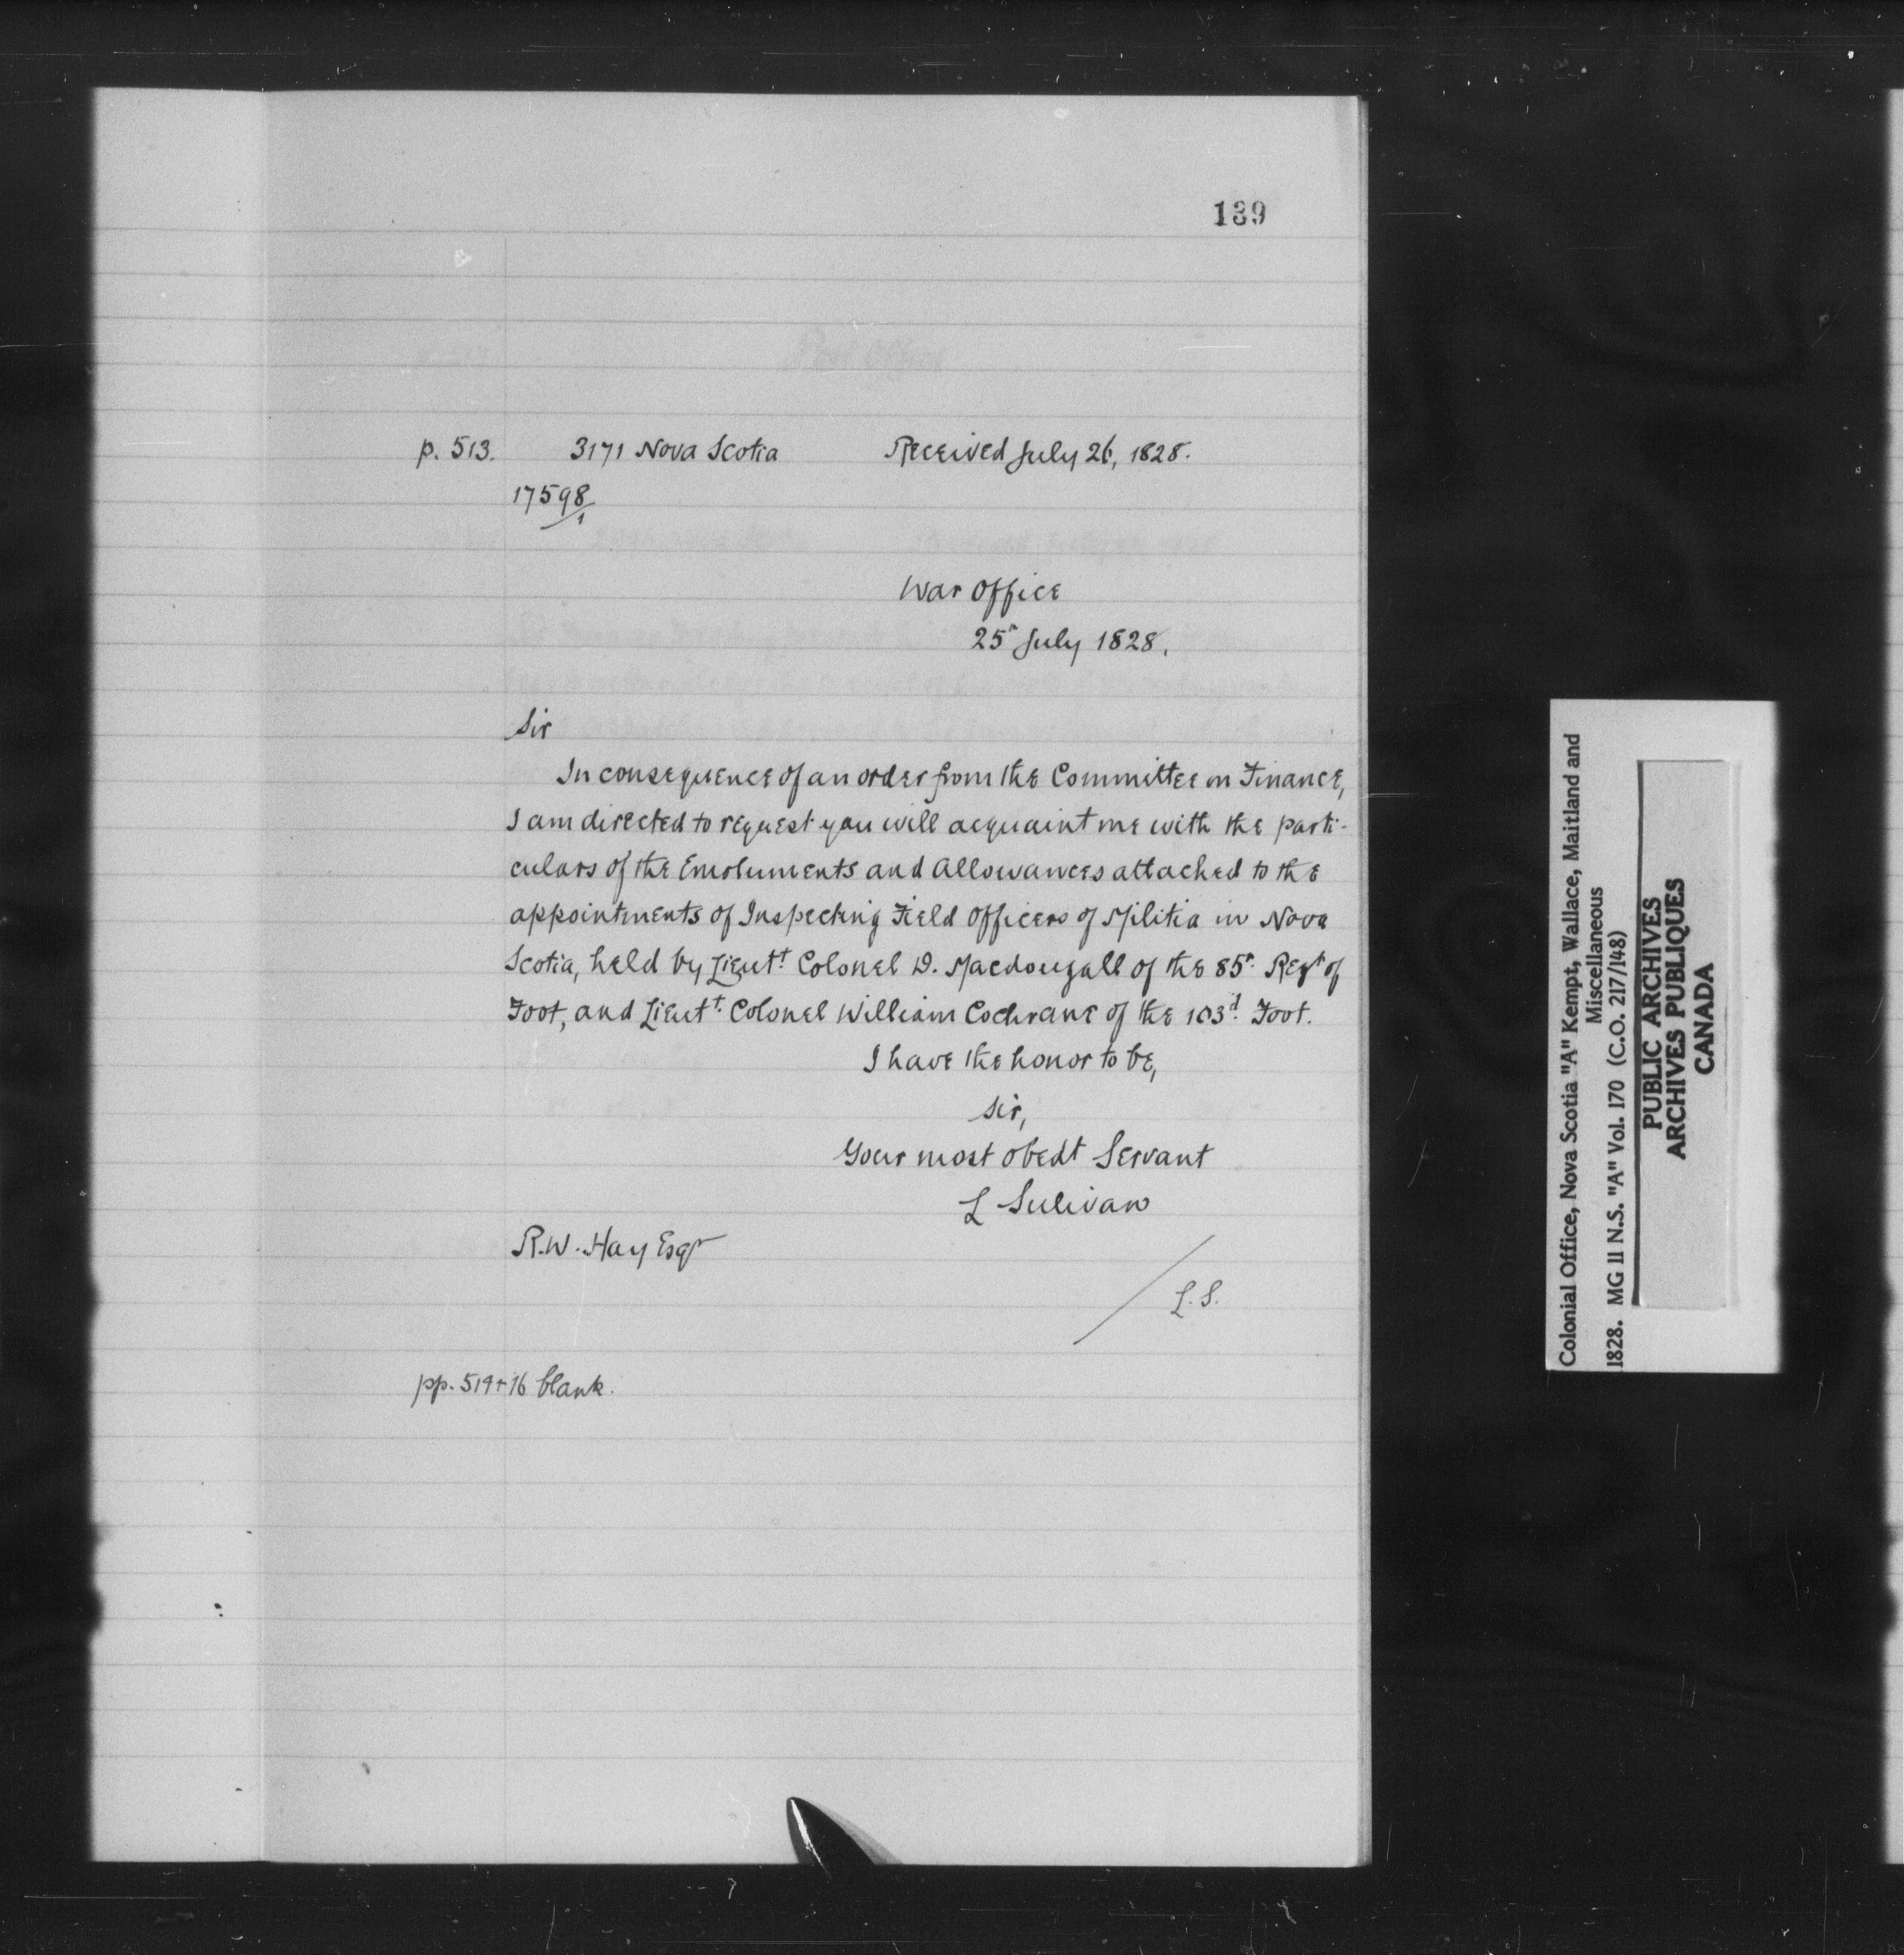 139
p. 513. 3171 Nova Scotia Received July 26, 1828.
17598/1
War Office
25th July 1828.
Sir
In consequence of an order from the Committee on Finance,
I am directed to request you will acquaint me with the parti-
culars of the Emoluments and Allowances attached to the
appointments of Inspecting Field Officers of Militia in Nova
Scotia, held by Lieutt. Colonel D. Macdougall of the 85th Regt of
Foot, and Lieutt. Colonel William Cochrane of the 103d. Foot.
I have the honor to be,
Sir,
Your most obedt Servant
L Sulivan
R.W. Hay Esqr
L.S.
pp. 514+16 blank.
Colonial Office, Nova Scotia "A" Kempt, Wallace, Maitland and
Miscellaneous
1828. MG 11 N.S. "A" Vol. 170 (C.O. 217/148)
PUBLIC ARCHIVES
ARCHIVES PUBLIQUES
CANADA